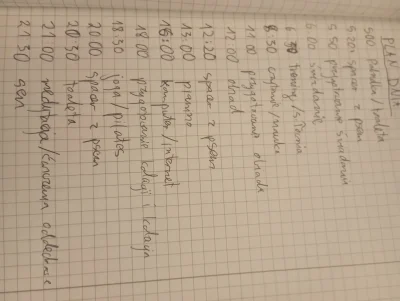 PLAN DNIA
5 00 pobudka/toaleta
5 20 spacer z psem
5 50 przygotowanie śniadania
6 00 śniadanie
6 30 trening/siłownia
8 30 czytanie/nauka
11 00 przygotowanie obiadu
12 00 obiad
12:20 spacer z psem
13 00 pianino
15:00 komputer/internet
18 00 przygotowanie kolacji i kolacja
18:30 joga/pilates
20 00 spacer z psem
20:30 toaleta
21 00 medytacja/ćwiczenia oddechowe
21 30 sen